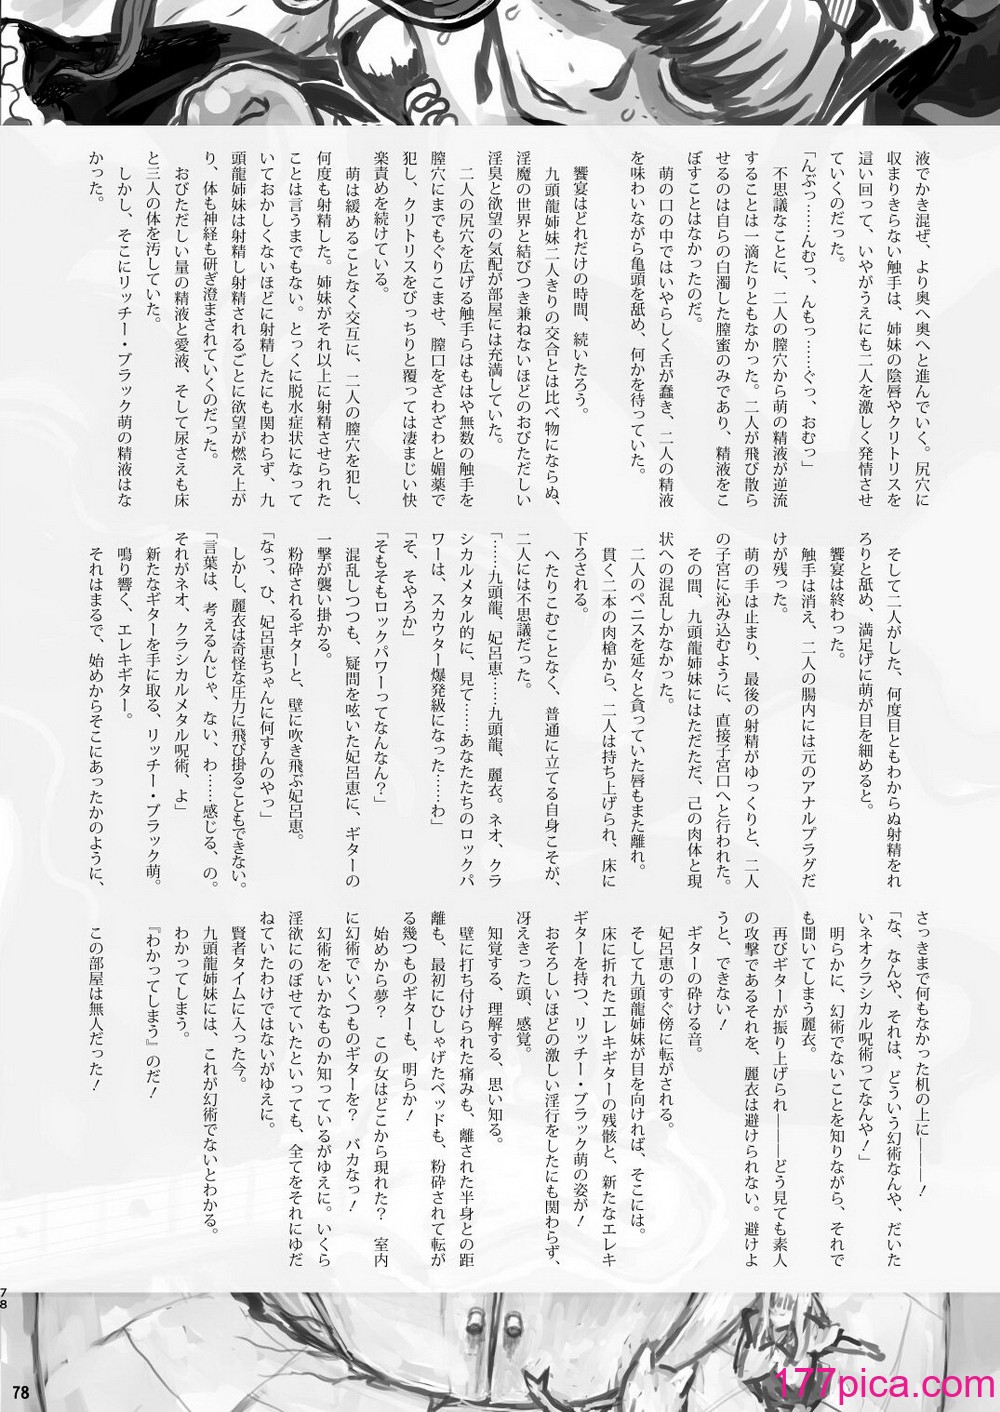 液でかき混ぜ、より奥へ奥へと進んでいく。尻穴に
収まりきらない触手は、姉妹の陰唇やクリトリスを
這い回って、いやがうえにも二人を激しく発情させ
ていくのだった。
「んぶっ……んむっ、んもっ……ぐっ、おむっ」
不思議なことに、二人の膣穴から萌の精液が逆流
することは一滴たりともなかった。二人が飛び散ら
せるのは自らの白濁した膣蜜のみであり、精液をこ
ぼすことはなかったのだ。
萌の口の中ではいやらしく舌が蠢き、二人の精液
を味わいながら亀頭を舐め、何かを待っていた。
饗宴はどれだけの時間、続いたろう。
九頭龍姉妹二人きりの交合とは比べ物にならぬ、
淫魔の世界と結びつき兼ねないほどのおびただしい
淫臭と欲望の気配が部屋には充満していた。
二人の尻穴を広げる触手らはもはや無数の触手を
膣穴にまでもぐりこませ、膣口をざわざわと媚薬で
犯し、クリトリスをびっちりと覆っては凄まじい快
楽責めを続けている。
萌は緩めることなく交互に、二人の膣穴を犯し、
何度も射精した。姉妹がそれ以上に射精させられた
ことは言うまでもない。とっくに脱水症状になって
いておかしくないほどに射精したにも関わらず、九
頭龍姉妹は射精し射精されるごとに欲望が燃え上が
り、体も神経も研ぎ澄まされていくのだった。
おびただしい量の精液と愛液、そして尿さえも床
と三人の体を汚していた。
しかし、そこにリッチー・ブラック萌の精液はな
かった。
そして二人がした、何度目ともわからぬ射精をれ
ろりと舐め、満足げに萌が目を細めると。
饗宴は終わった。
触手は消え、二人の腸内には元のアナルプラグだ
けが残った。
萌の手は止まり、最後の射精がゆっくりと、二人
の子宮に沁み込むように、直接子宮口へと行われた。
その間、九頭龍姉妹にはただただ、己の肉体と現
状への混乱しかなかった。
二人のペニスを延々と貪っていた唇もまた離れ。
貫く二本の肉槍から、二人は持ち上げられ、床に
下ろされる。
へたりこむことなく、普通に立てる自身こそが、
二人には不思議だった。
「……九頭龍、妃呂恵……九頭龍、麗衣。ネオ、クラ
シカルメタル的に、見て……あなたたちのロックパ
ワーは、スカウター爆発級になった……わ」
「そ、そやろか」
「そもそもロックパワーってなんなん？」
混乱しつつも、疑問を呟いた妃呂恵に、ギターの
一撃が襲い掛かる。
粉砕されるギターと、壁に吹き飛ぶ妃呂恵。
「なっ、ひ、妃呂恵ちゃんに何すんのやっ」
しかし、麗衣は奇怪な圧力に飛び掛ることもできない。
「言葉は、考えるんじゃ、ない、わ……感じる、の。
それがネオ、クラシカルメタル呪術、よ」
新たなギターを手に取る、リッチー・ブラック萌。
鳴り響く、エレキギター。
それはまるで、始めからそこにあったかのように、
さっきまで何もなかった机の上に――――！
「な、なんや、それは、どういう幻術なんや、だいた
いネオクラシカル呪術ってなんや！」
明らかに、幻術でないことを知りながら、それで
も聞いてしまう麗衣。
再びギターが振り上げられ――――どう見ても素人
の攻撃であるそれを、麗衣は避けられない。避けよ
うと、できない！
ギターの砕ける音。
妃呂恵のすぐ傍に転がされる。
そして九頭龍姉妹が目を向ければ、そこには。
床に折れたエレキギターの残骸と、新たなエレキ
ギターを持つ、リッチー・ブラック萌の姿が！
おそろしいほどの激しい淫行をしたにも関わらず、
冴えきった頭、感覚。
知覚する、理解する、思い知る。
壁に打ち付けられた痛みも、離された半身との距
離も、最初にひしゃげたベッドも、粉砕されて転が
る幾つものギターも、明らか！
始めから夢？　この女はどこから現れた？　室内
に幻術でいくつものギターを？　バカなっ！
幻術をいかなものか知っているがゆえに。いくら
淫欲にのぼせていたといっても、全てをそれにゆだ
ねていたわけではないがゆえに。
賢者タイムに入った今。
九頭龍姉妹には、これが幻術でないとわかる。
わかってしまう。
『わかってしまう』のだ！
この部屋は無人だった！
78
78
177pica.com